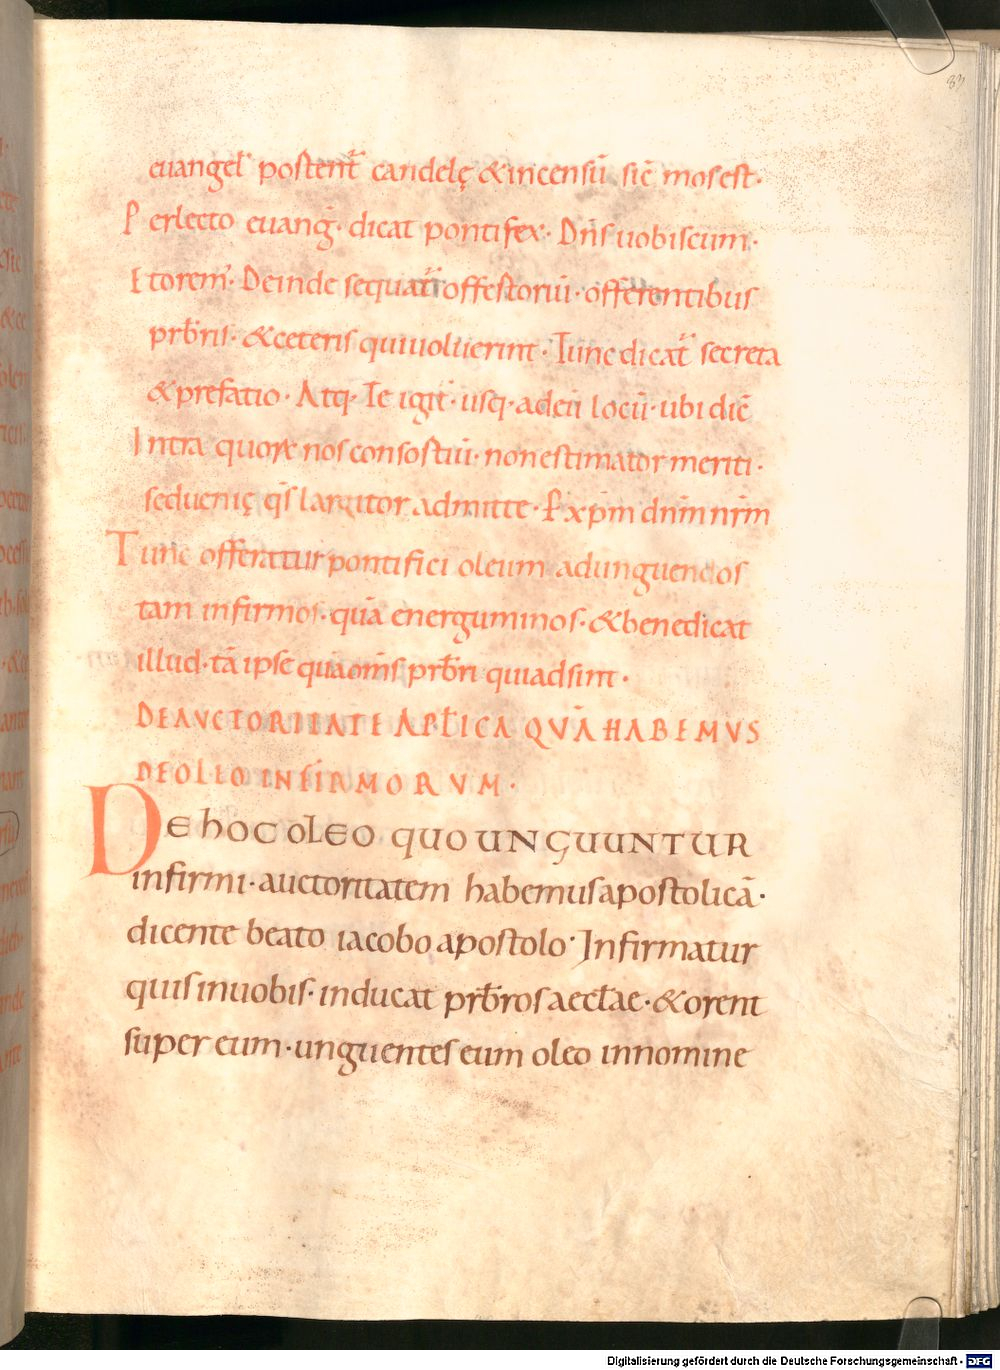 83
euangel̄ postent᷑ candelę &incensū sic̄ mosest·
Perlecto euanḡ· dicat pontifex· Dn̄s uobiscum·
Etorem᷑· Deinde sequat᷑ offestoriū· offerentibus
prb̄ris· &ceteris quiuoluerint· Tunc dicat᷑ secreta
&prefatio· Atq· Te igit᷑· usq· adeū locū· ubi dic̄
Intra quorꝝ nos consostiū· nonestimator meriti·
sedueniç qs̄ largitor admitte· P̱ xp̄m dnm̄ nrm̄
Tunc offeratur pontifici oleum adunguendos
tam infirmos· quā energuminos· &benedicat
illud· tā ipse quāom̄s prb̄ri quiadsunt·
DEAVCTORITATE APT̄ICA QVĀ HABEMVS
DEOLEO INFIRMORVM·
DE hOC OLEO QUO UNGUUNTUR
infirmi· auctoritatem habemusapostolicā·
dicente beato iacobo apostolo· Infirmatur
quis inuobis· inducat prb̄ros aeccl̄ae· &orent
super eum· unguentes eum oleo innomine
Digitalisierung gefördert durch die Deutsche Forschungsgemeinschaft - DFG